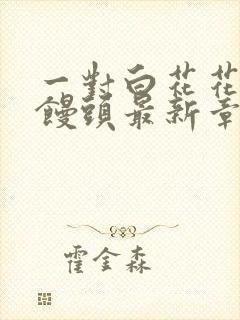 一對白花花
饅頭最新章
霍金森